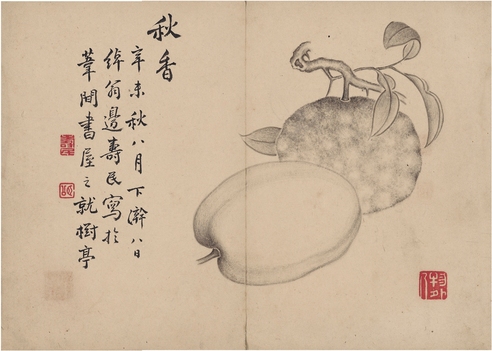 秋香
辛未秋八月下澣八日
綽翁邊壽民寫於
葦間書屋之就樹亭